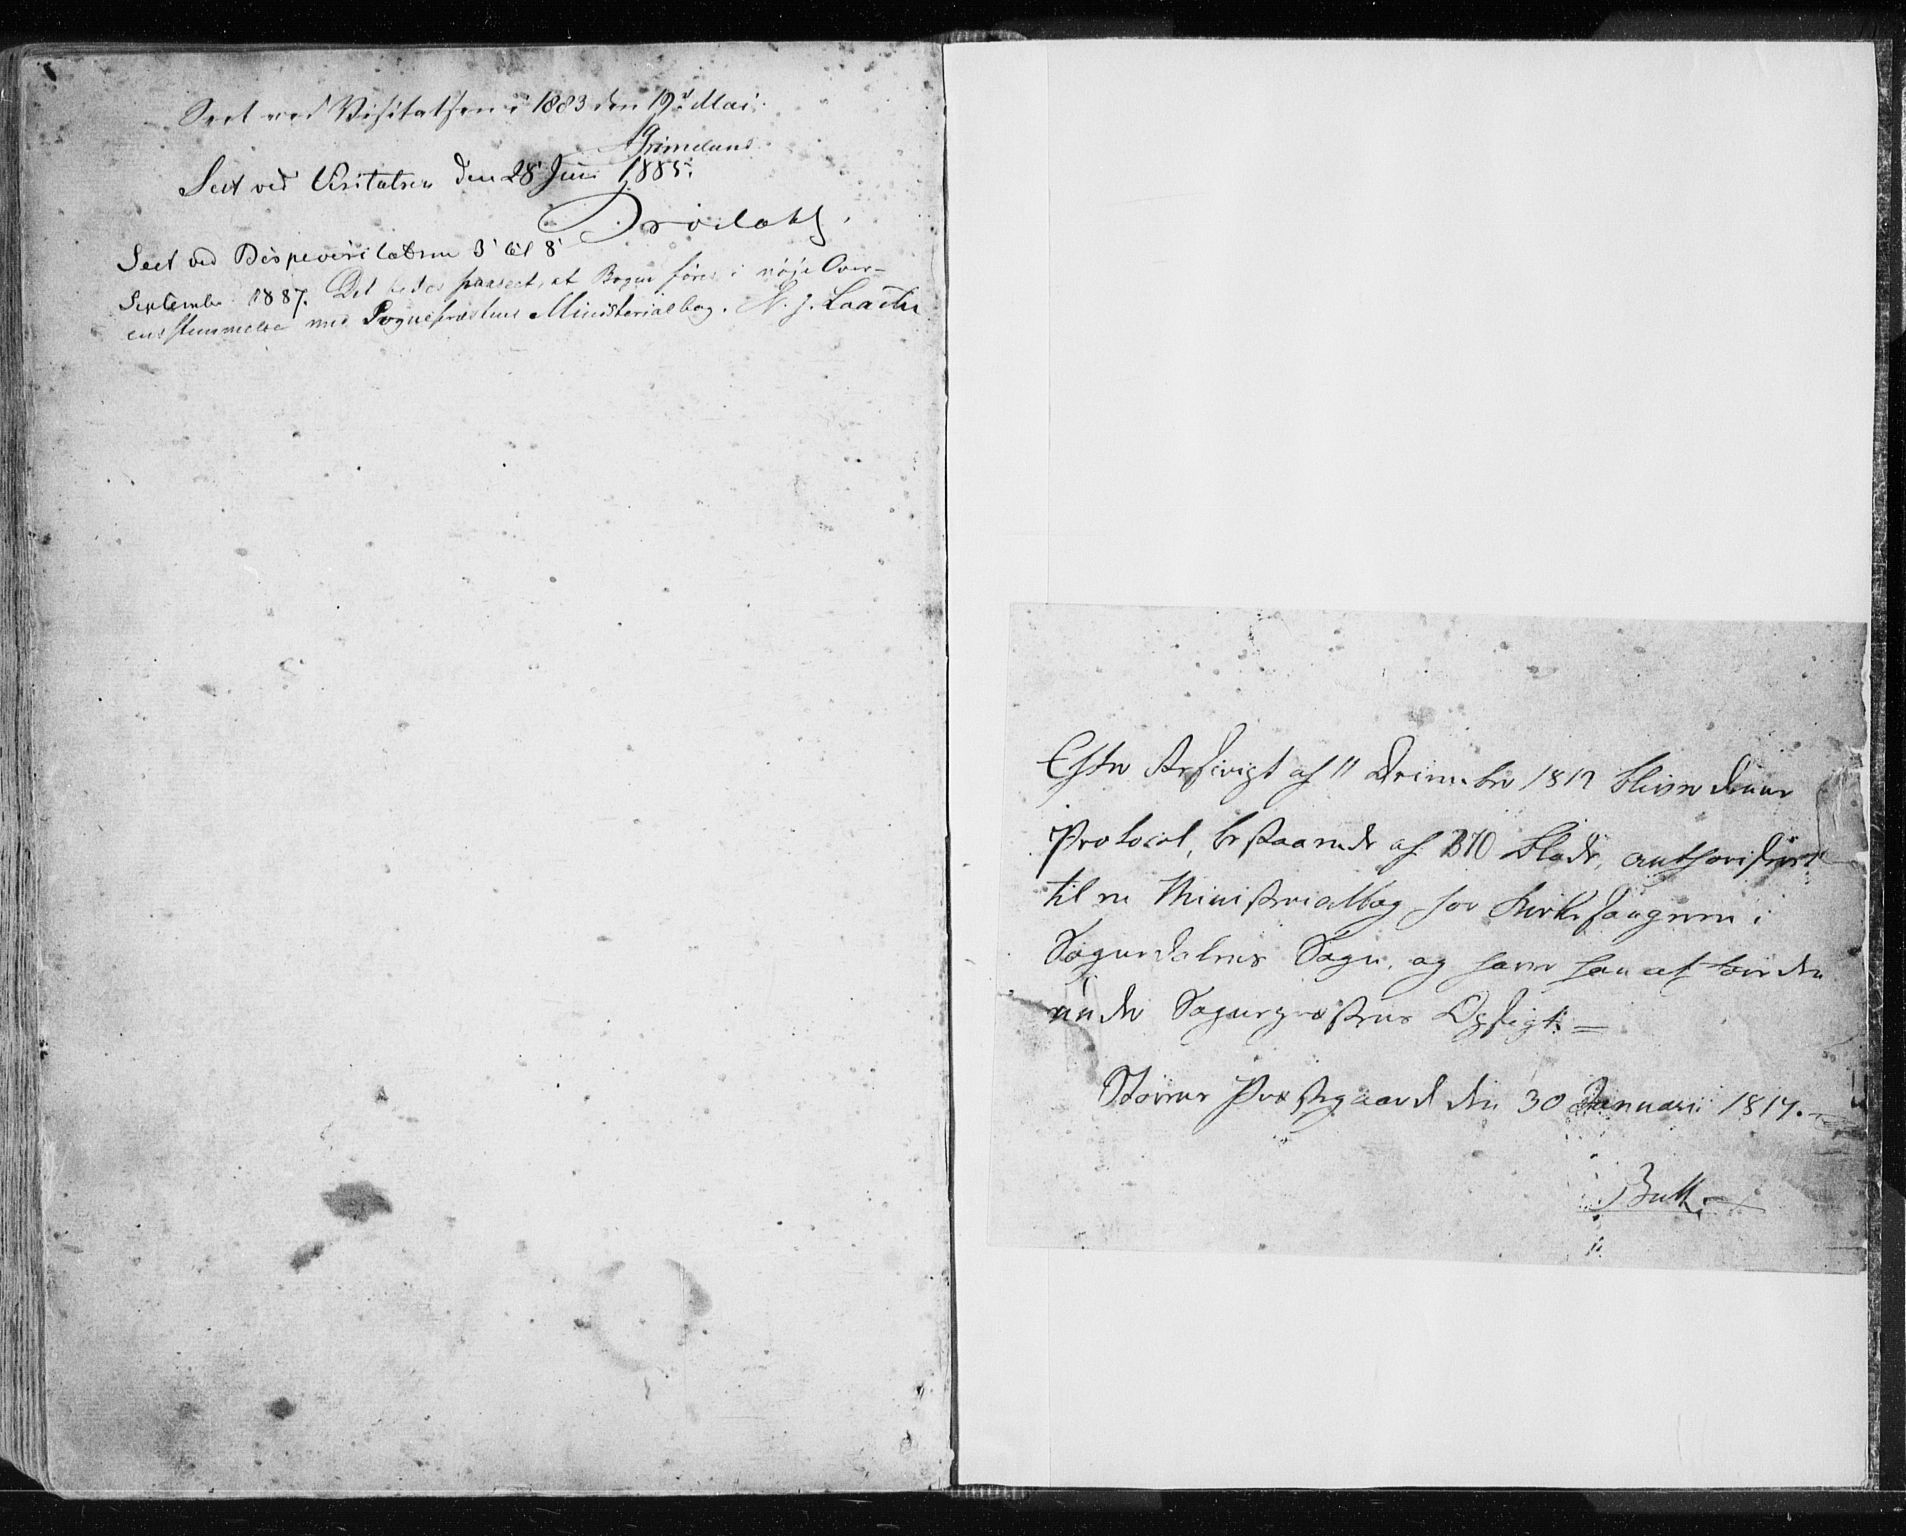 Seet ved Visitatsen i 1883 den 19d Mai.
AGrimelund
Seet ved Visitatsen den 28 Juni 1885.
Seet ved Bispevisitatsen 3' til 8'
September 1887. Det bedes paaseet, at Bogen føres i nöje Over-
ensstemmelse med Sognepræstens Ministerialbog. N. J. Laache
Efter Reskript af 11 December 1812 bliver denne
Protocol, bestaaende af 370 Blade, authoriseret
til en Ministerialbog for Kirkesangeren i
Sognedalens Sogn, og haver han at føre den
under Sognepræstens Opsigt. =
Størens Præstegaard den 30 Januarii 1817.
Bull